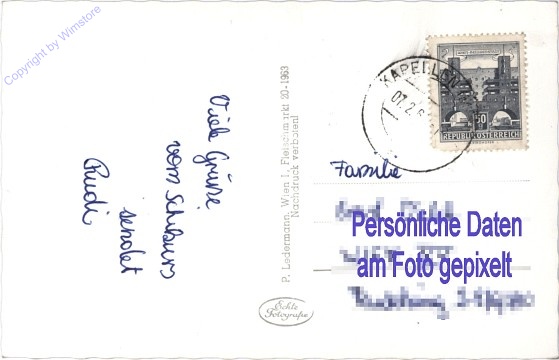 Copyright by Wimstore
Viele Grüße
vom Schikurs
sendet
Rudi
P. Ledermann, Wien I, Fleischmarkt 20 - 1963
Nachdruck verboten!
Echte
Fotografie
KAPELLEN
07.2.6
50
REPUBLIK ÖSTERREICH
Familie
Persönliche Daten
am Foto gepixelt